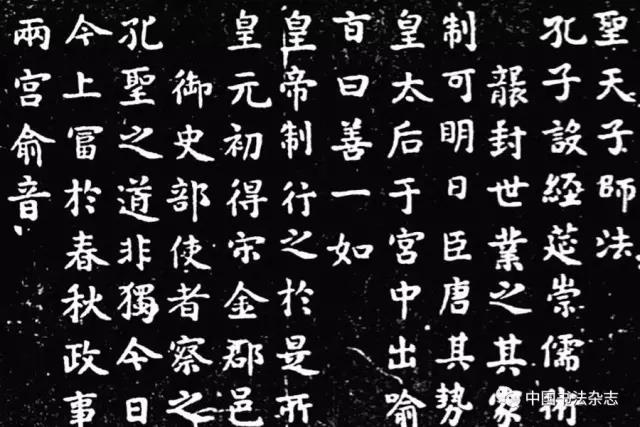 聖天子師法
孔子設經筵崇儒術
襲封世業之其家
制可明日臣唐其勢
皇太后于宮中出喻
旨曰善一如
皇帝制行之於是所
皇元初得宋金郡邑
御史部使者察之
孔聖之道非獨今日
今上冨於春秋政事
兩宮俞音
中国书法杂志